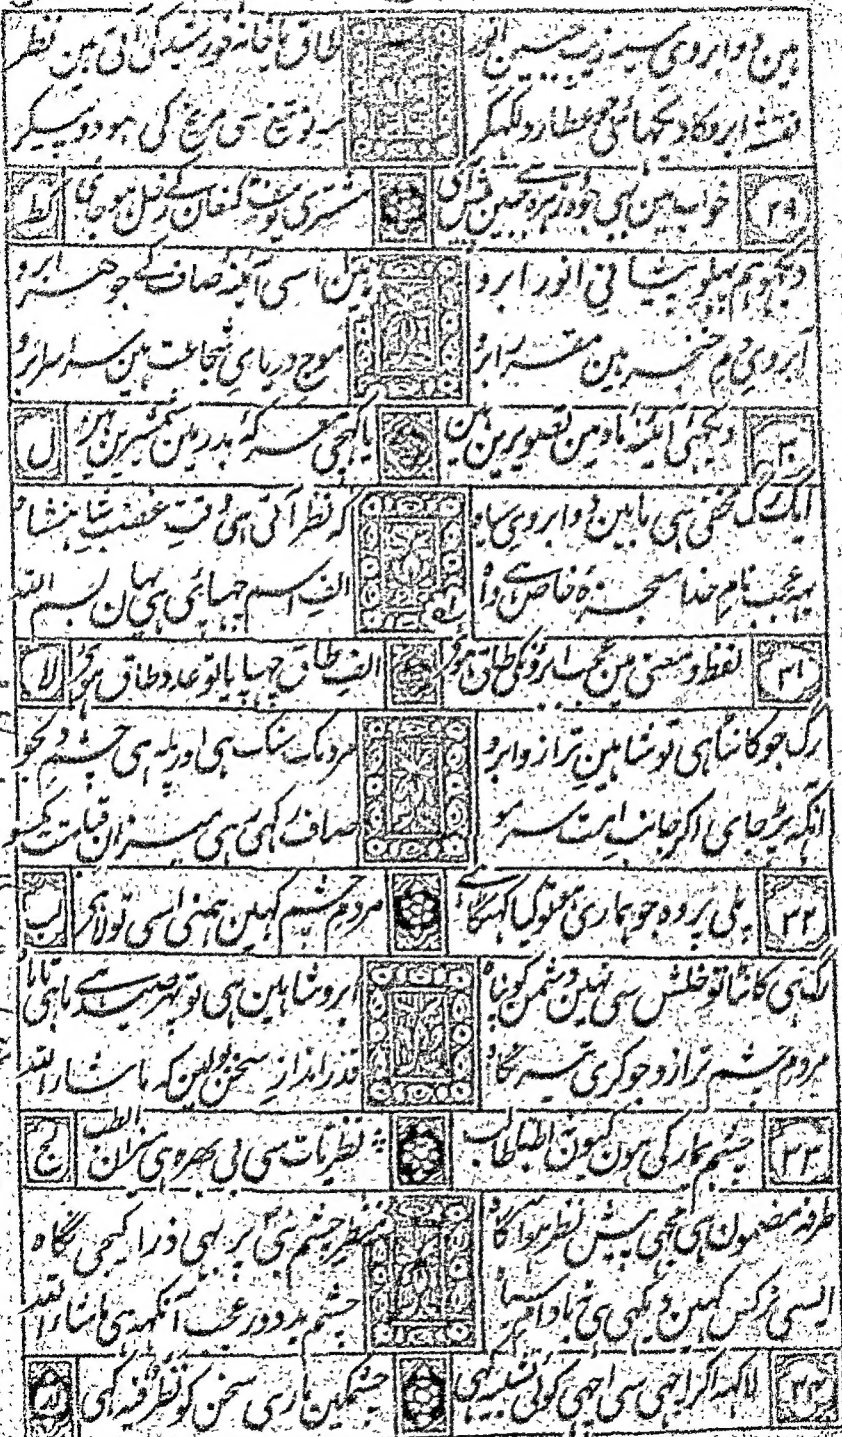 ہین دو ابروی سیہ زیب جبین انور طاق یا خانہ خورشید کی آتی ہین نظر
نقشہ ابرو کا دیکھائی جو عطارد لکھکر مہ نو تیغ سی مریخ کی ہو دو پیکر
۲۹ خواب مین بہی جو وہ زہرہ جبین پیش آئی مشتری یوسف کنعان کے زحل ہو جائی کط
دیکھو ہم پہلوی پیشانی انور ابرو ہین اسی آئنہ صاف کے جوہر ابرو
آبروی دم خنجر ہین مقرر ابرو موج دریای شجاعت ہین سراسر ابرو
۳۰ دیکھئی آئینۂ ماہ مین تصویرین ہین یا کھچی معرکۂ بدر مین شمشیرین ہین ل
ایک رگ مخفی ہی مابین دو ابروی سیاہ کہ نظر آتی ہی وقت غضب شاہنشاہ
یہ عجب نام خدا معجزۂ خاص ہے واہ الف اسم چھپا ہی یہان بسم اللہ
۳۱ لفظ و معنی مین عجب ابرو کی طاق ہوئی الف طاق چھپایا تو عدد طاق ہوئی لا
رگ جو کانٹا ہی تو شاہین ترازو ابرو مردمک سنگ ہی اور پلہ ہی چشم دلجو
آنکھ پڑ جای اگر جانب امت سر مو صاف کہی ہی میزان قیامت یکسو
۳۲ پلی پر وہ جو ہماری ہو تو کیا کہنا ہے مردم چشم کہین ہمنی اسی تولا ہے لب
رگ ہی کانٹا تو خلش سی نہین دشمن کو پناہ ابرو شاہین ہی تو پھر صید ہے ماہی تا ماہ
مردم چشم ترازو جو کری تیر نگاہ قدر انداز سخن بولین کہ ماشاء اللہ
۳۳ چشم بیمار کی ہون کیون اطبا طالب نظریات سی بی بہرہ ہی میزان الطب لج
طرفہ مضمون ہی مجھی پیش نظر ہو آگاہ منظر چشم نبی پر بہی ذرا کیجی نگاہ
ایسی نرگس کہین دیکھی ہی نہ بادام سیاہ چشم بد دور عجب آنکھ ہی ماشاء اللہ
۳۴ لاکھ اگر اچھی سی اچھی کوئی تشبیہ کہی چشمکین ماری سخن گو نظر فیہ کہی لد